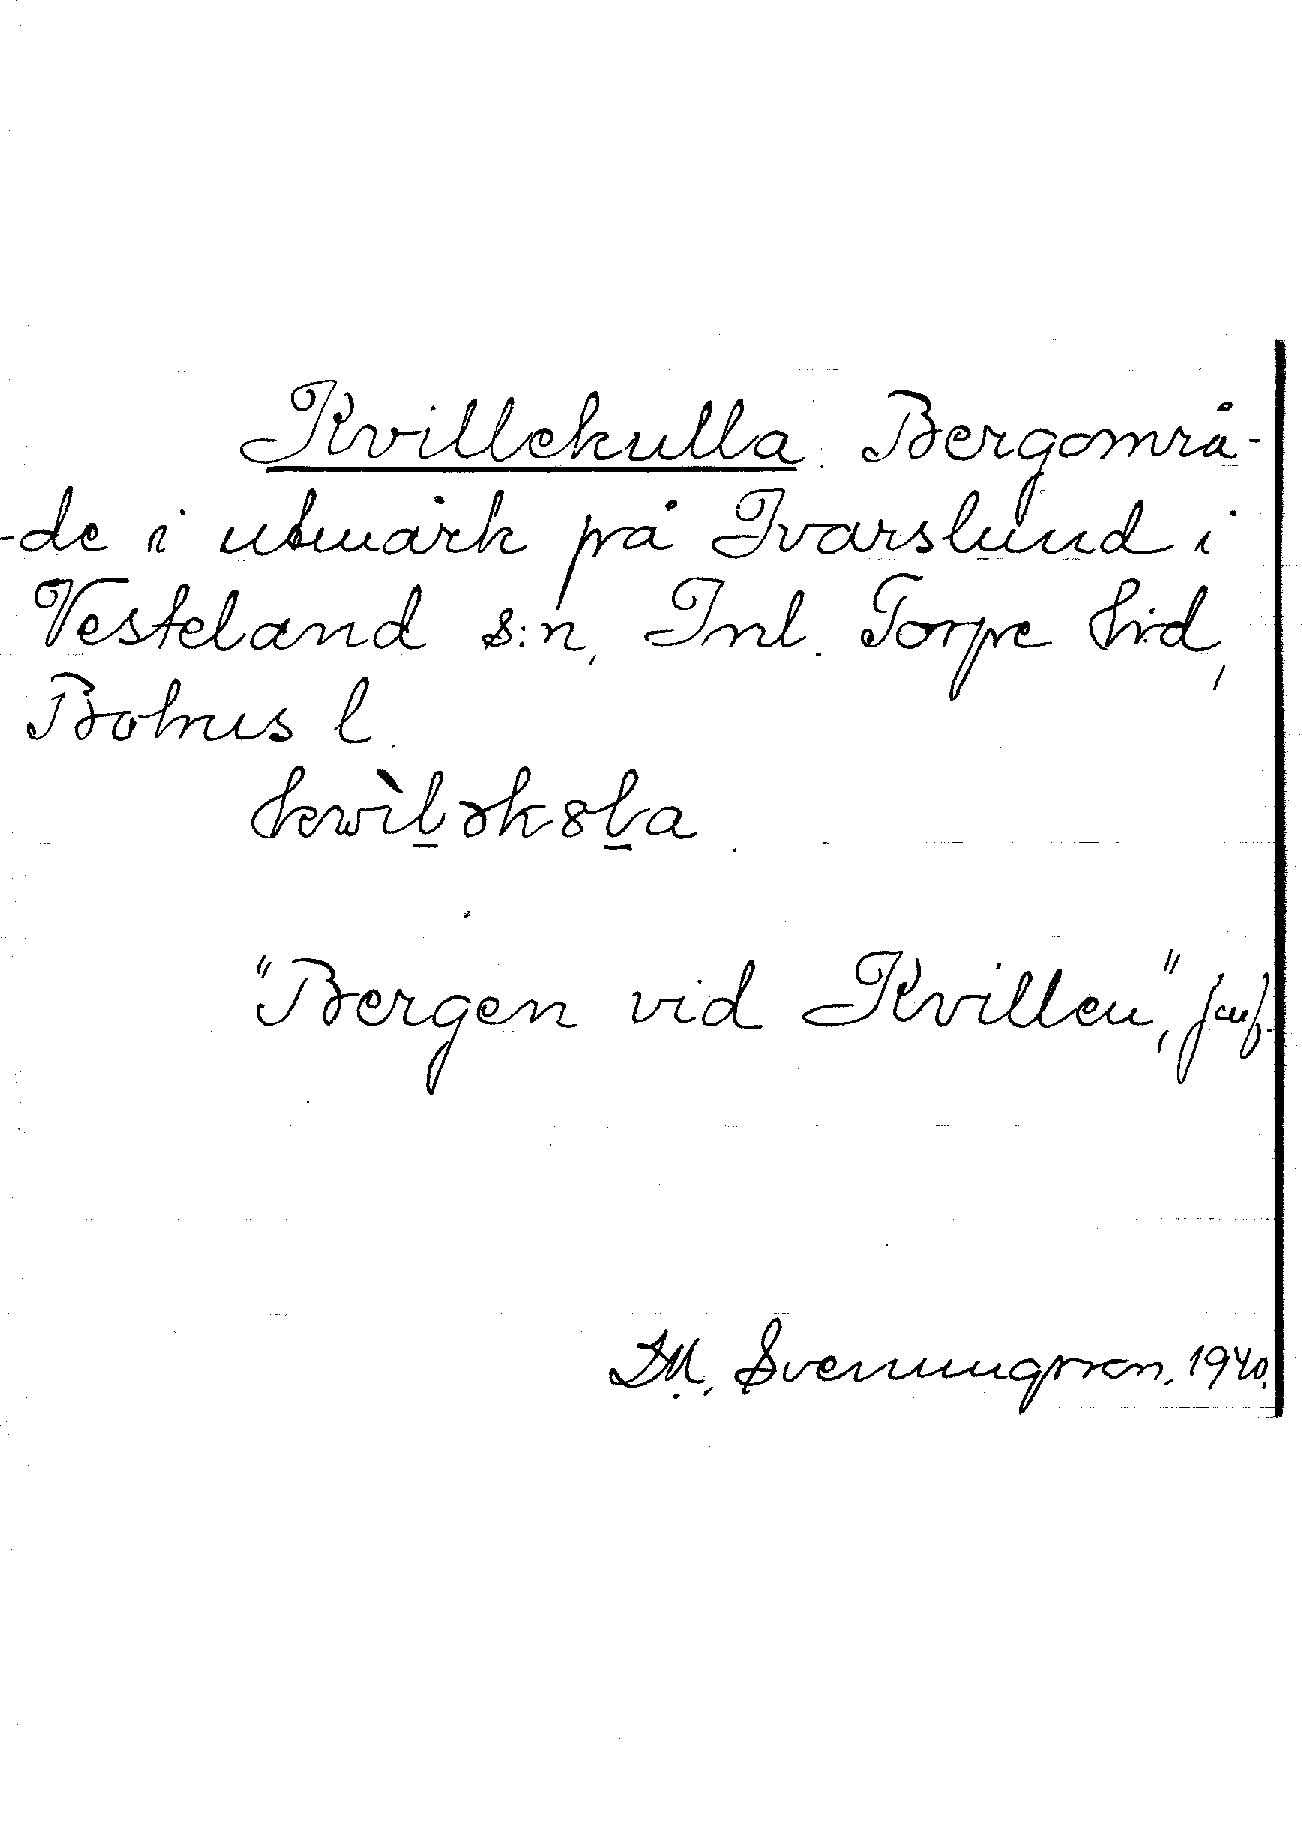 Kvillekulla. Bergområ-
-de i utmark på Ivarslund i
Vesteland s:n, Inl. Torpe hrd,
Bohus l.
kwìḻəkȣḻa.
"Bergen vid Kvillen",
D.M. Svenungsson. 1940.